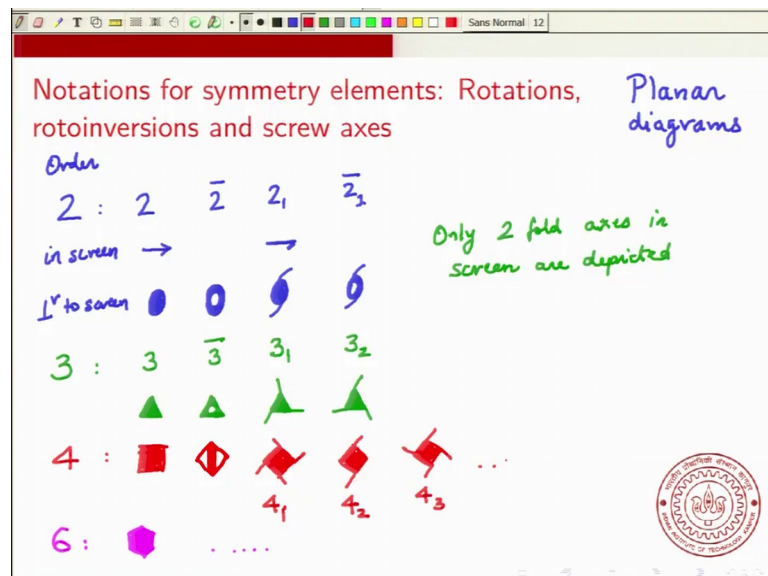 Sans Normal 12
Notations for symmetry elements: Rotations,
rotoinversions and screw axes
Planar
diagrams
Order
2 : 2 2̅ 2₁ 2̅₁
in screen → →
⊥ʳ to screen
Only 2 fold axes in
screen are depicted
3 : 3 3̅ 3₁ 3₂
4 :
4₁ 4₂ 4₃ ...
6 : .....
INDIAN INSTITUTE OF TECHNOLOGY KANPUR